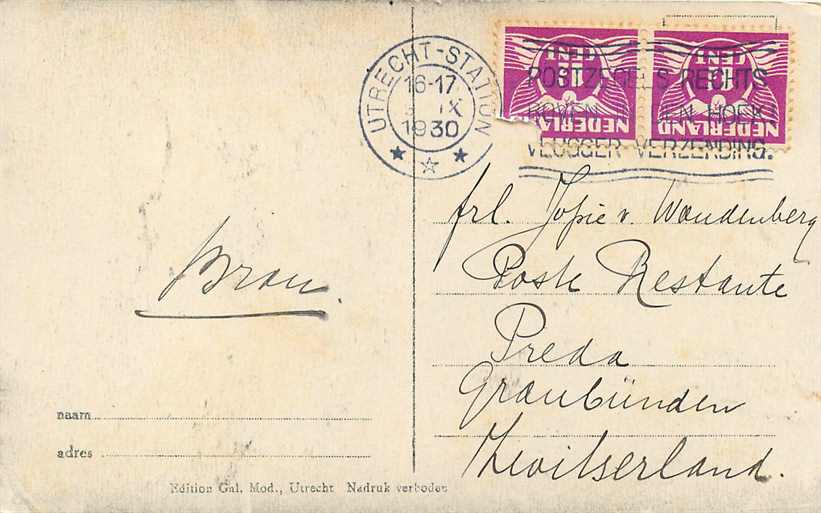 UTRECHT-STATION
16-17
IX
1930
POSTZEGELS RECHTS
BOVEN IN DEN HOEK
VLUGGER VERZENDING.
CENT CENT
NEDERLAND NEDERLAND
frl. Jopie v. Woudenberg
Poste Restante
Preda
Graubünden
Zwitserland.
Bram.
naam
adres
Edition Gal. Mod., Utrecht Nadruk verboden